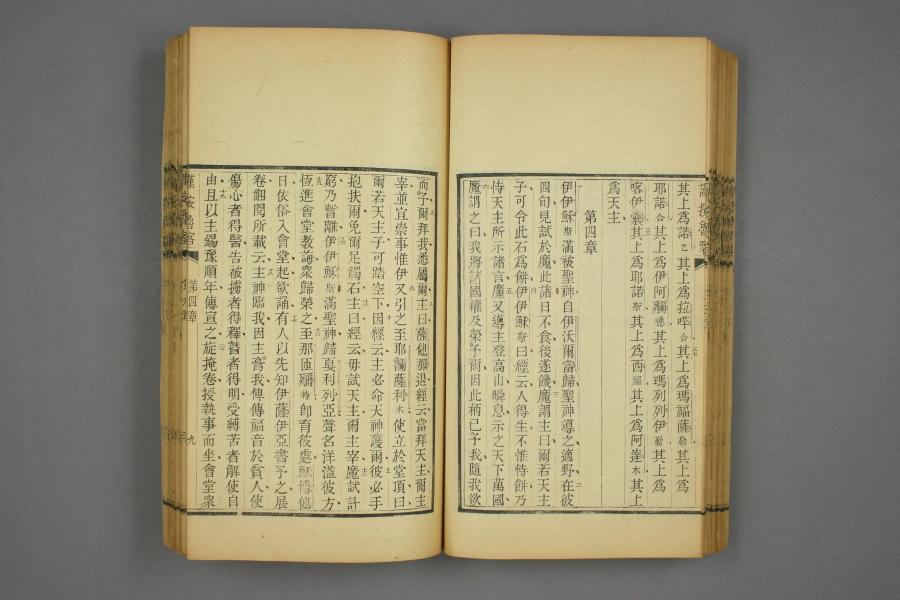 其上爲諾 其上爲拉 合其上爲瑪福薩 勒其上爲
耶諾 合其上爲伊阿 其上爲瑪列列伊 勒其上爲
喀伊 其上爲耶諾 斯其上爲西 其上爲阿達 木其上
爲天主
第四章
伊伊穌斯滿被聖神自伊沃爾當歸聖神導之適野在彼
四旬見試於魔此諸日不食後遂饑魔謂主曰爾若天主
子可令此石爲餅伊伊穌斯曰經云人得生不惟恃餅乃
恃天主所示諸言魔又導主登高山瞬息示之天下萬國
魔謂之曰我將諸國權及榮予爾因此柄已予我隨我欲
而予爾拜我悉屬爾主曰薩他那退經云當拜天主爾主
宰並宜崇事惟伊又引之至耶 薩利木使立於堂頂曰
爾若天主子可踏空下因經云主必命天神護爾彼必手
抱扶爾免爾足觸石主曰經云毋試天主爾主宰魔試計
窮乃暫離伊伊穌斯滿聖神歸 利列亞聲名洋溢彼方
恆進會堂教誨衆歸榮之至那 即育彼處
日依俗入會堂起欲誦有人以先知伊薩伊亞書予之展
卷翻閱所載云主神臨我因主膏我俾傳福音於貧人使
傷心者得醫告被擄者得釋瞽者得明受縛苦者解使自
由且以主錫豫順年傳宣之 掩卷授執事而坐會堂衆
第四章
九